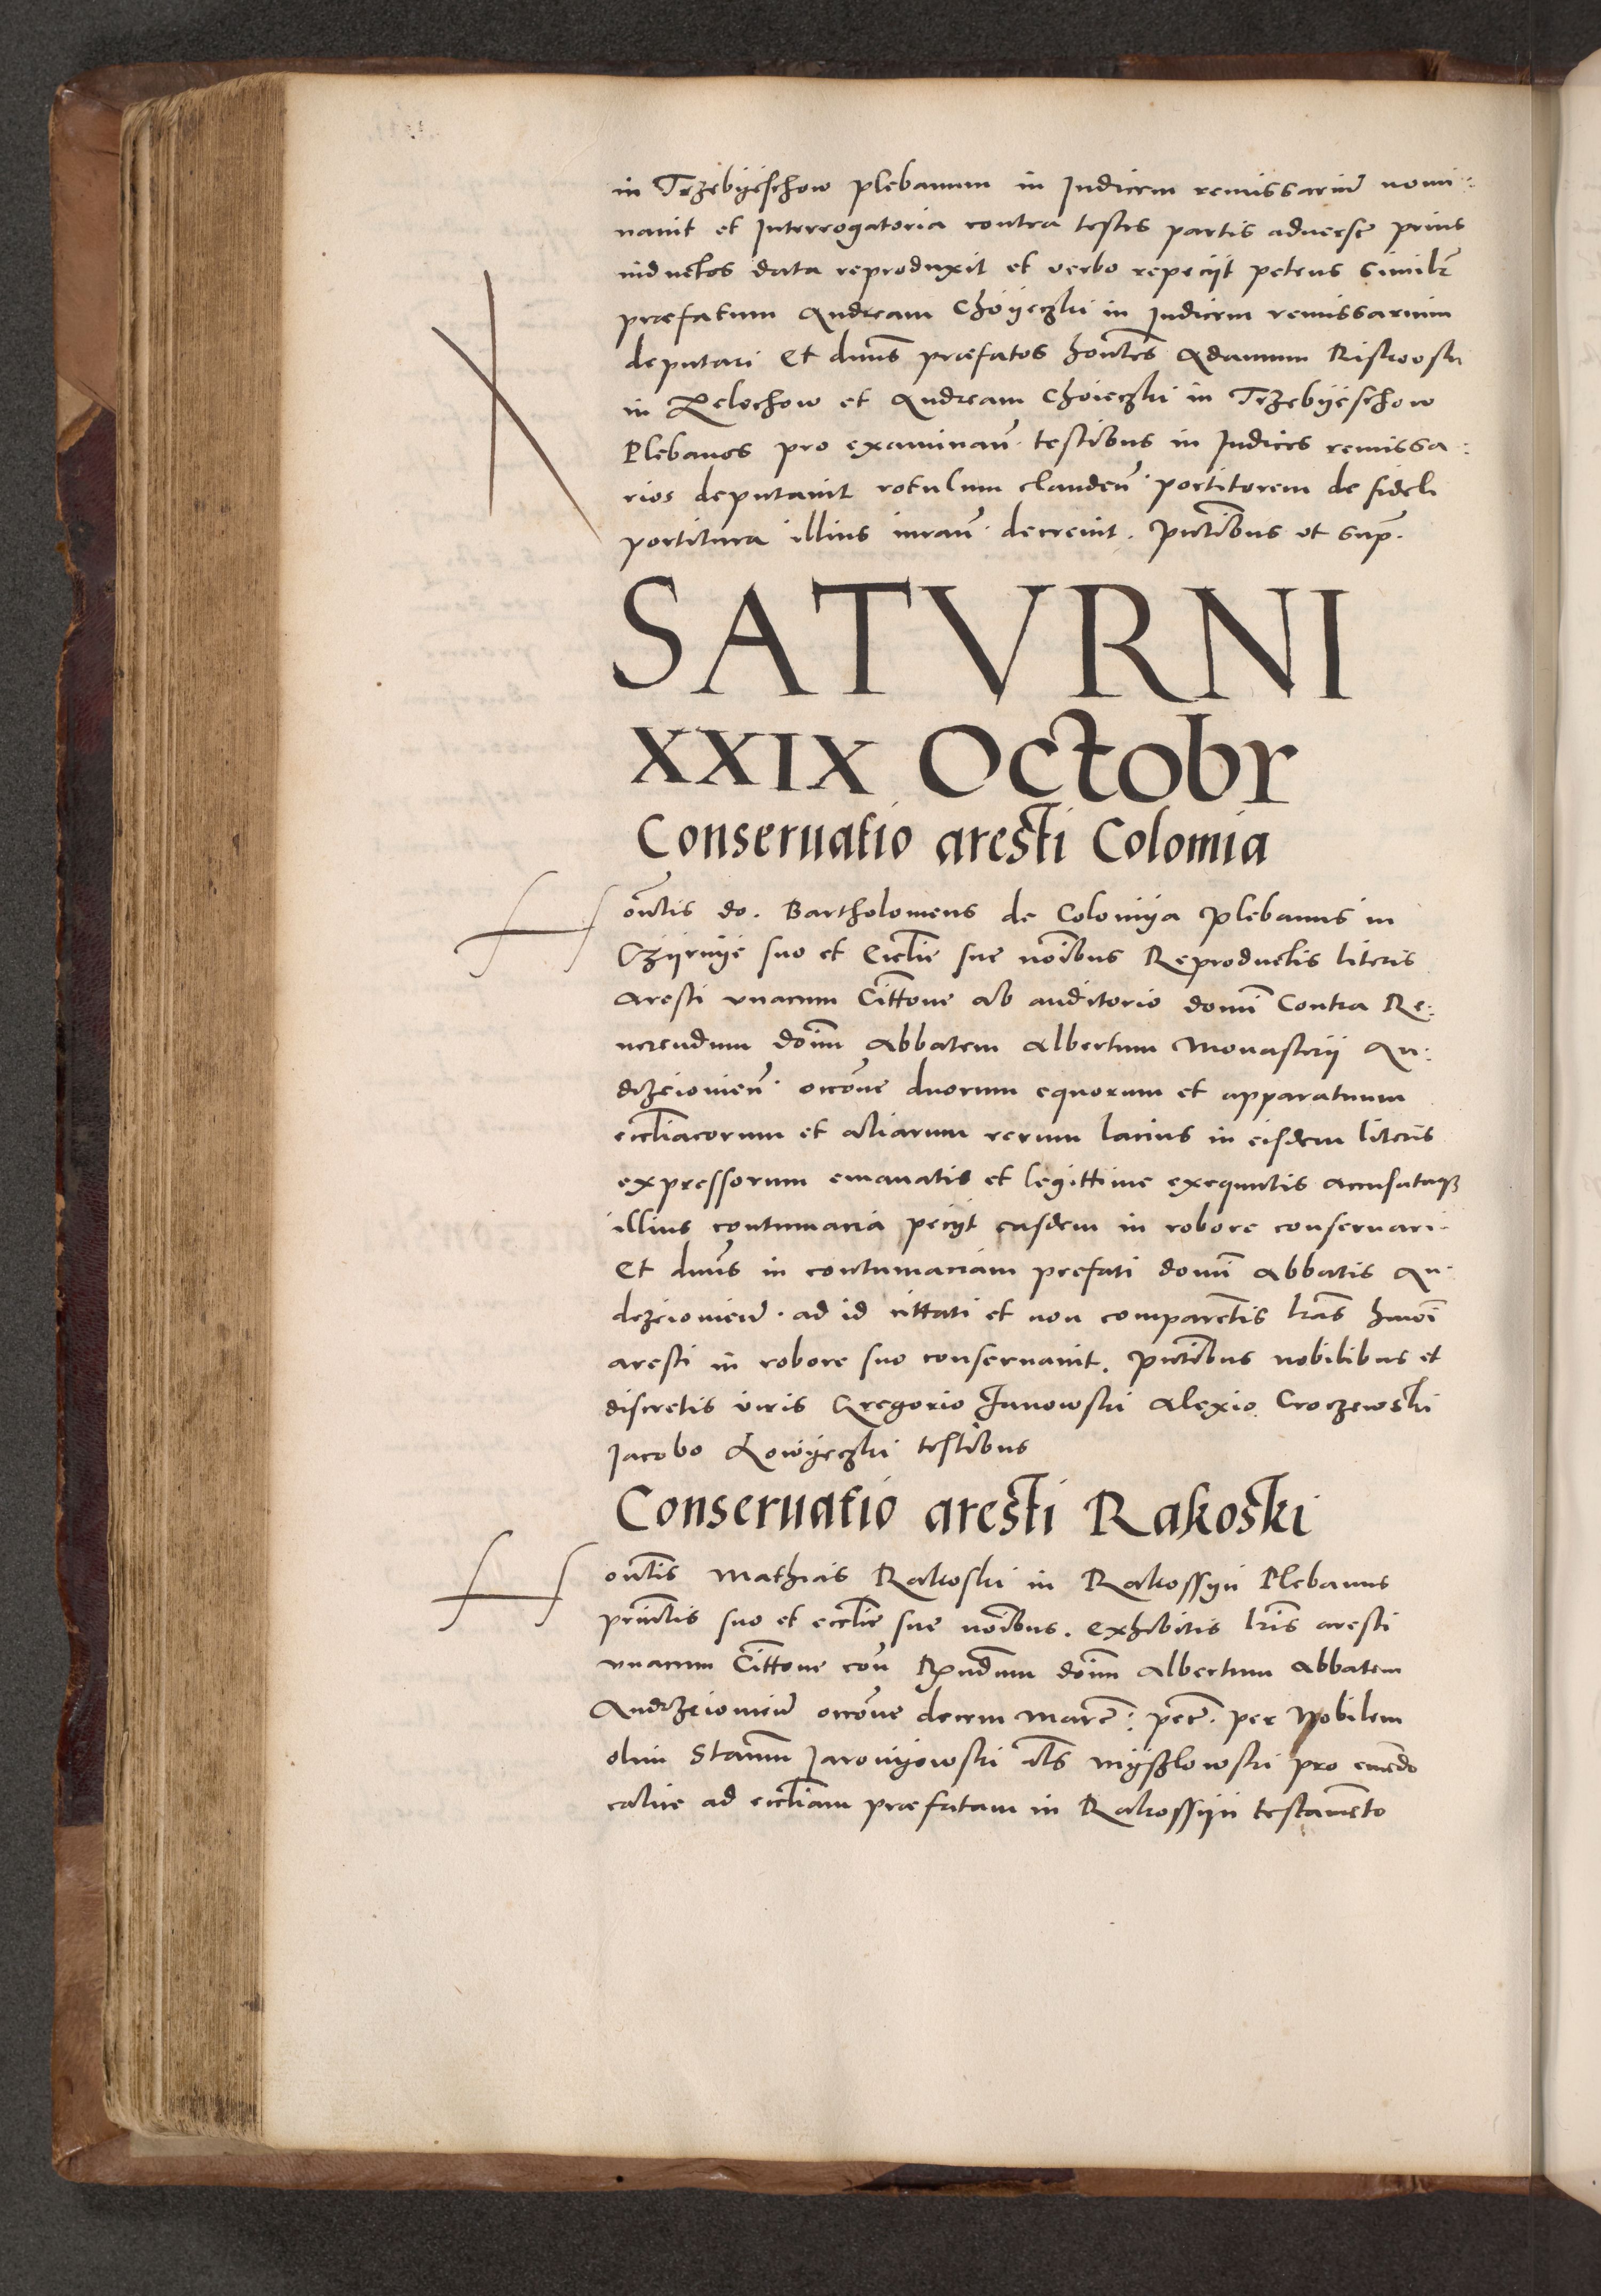 in Trzebyeschow plebanum in Judicem remissariū nomi:
navit et Interrogatoria contra testes partis adverse prius
inductos data reproduxit et verbo repeciit petens similr̄
præfatum Andream Choyeczki in Judicem remissarium
deputari Et dnūs præfatos hontēs Adamum Riskowski
in Zelechow et Andream Choieczki in Trzebyeschow
Plebanos pro examinan̄. testibus in Judices remissa:
rios deputavit rotulum clauden̄. portitorem de fideli
portitura illius iuran̄. decrevit. Pn̄tibus vt sup̄.
SATVRNI
XXIX Octobr
Conseruatio aresti Colomia
Hon̄lis do. Bartholomeus de Colomya Plebanus in
Czyrnye suo et Ecclīe sue noībus Reproductis literis
aresti vnacum Cittōne ab auditorio domī Contra Re:
uerendum doīm Abbatem Albertum Monasterij An:
drzeiouien̄. occōne duorum equorum et apparatuum
ecclīacorum et aliarum rerum lacius in eisdem literis
expressorum emanatis et legittime exequutis accusataq3
illius contumacia peciit easdem in robore conseruari.
Et dnūs in contumaciam prefati domī Abbatis An:
drzeiouien̄. ad id cittati et non comparen̄tis lrās hmōi
aresti in robore suo conseruauit. Pn̄tibus nobilibus et
discretis viris Gregorio Junowski Alexio Croczewski
Jacobo Lowyeczki testibus
Conseruatio aresti Rakoski
Hon̄lis Mathias Rakoski in Rakossyn Plebanus
prin̄lis suo et ecclīe sue noībus. exhibitis lrīs aresti
vnacum Cittōne con̄ Rn̄dum doīm Albertum Abbatem
Andrzeiouien̄ occōne decem marc̄. pec̄. per Nobilem
olim Stanm̄ Jaronyowski als̄ myszlowski pro emēdo
calice ad ecclīam præfatam in Rakossyn testamēto